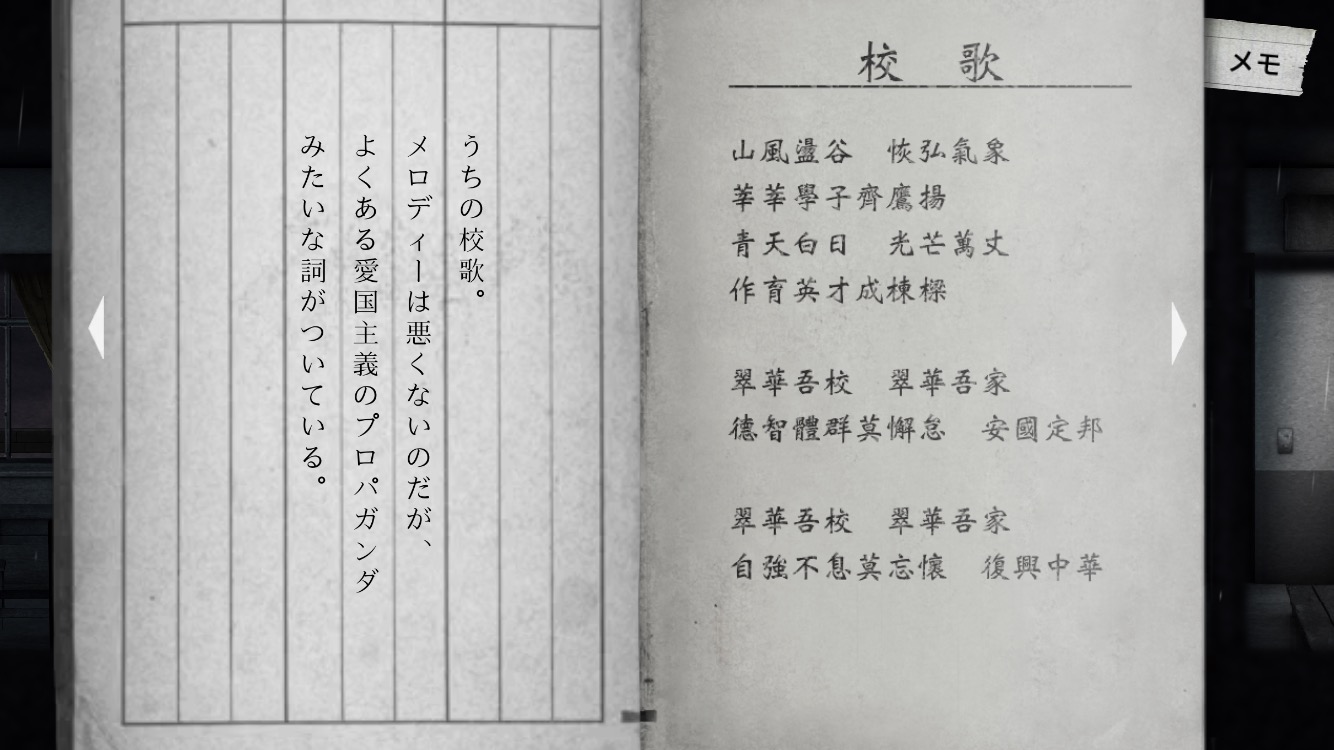 うちの校歌。
メロディーは悪くないのだが、
よくある愛国主義のプロパガンダ
みたいな詞がついている。
校　歌
山風盪谷　恢弘氣象
莘莘學子齊鷹揚
青天白日　光芒萬丈
作育英才成棟樑
翠華吾校　翠華吾家
德智體群莫懈怠　安國定邦
翠華吾校　翠華吾家
自強不息莫忘懷　復興中華
メモ